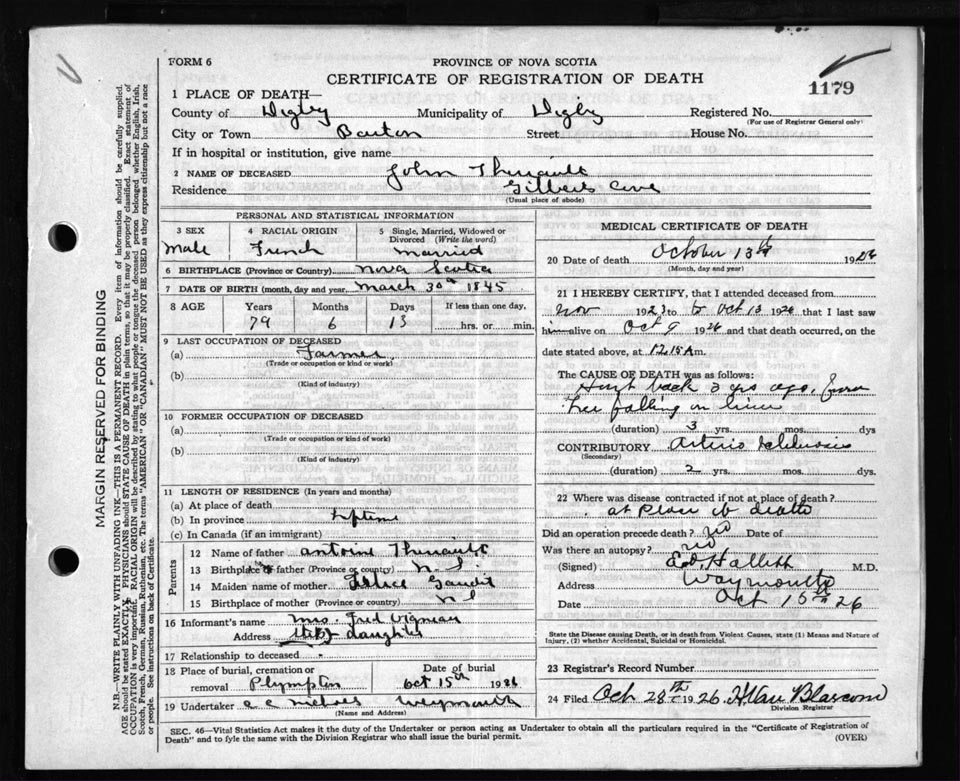 FORM 6
PROVINCE OF NOVA SCOTIA
CERTIFICATE OF REGISTRATION OF DEATH
1179
1 PLACE OF DEATH—
County of Digby Municipality of Digby Registered No.
(For use of Registrar General only)
City or Town Barton Street House No.
If in hospital or institution, give name
2 NAME OF DECEASED John Theriault
Residence Gilberts Cove
(Usual place of abode)
PERSONAL AND STATISTICAL INFORMATION
3 SEX 4 RACIAL ORIGIN 5 Single, Married, Widowed or Divorced (Write the word)
Male French Married
6 BIRTHPLACE (Province or Country) Nova Scotia
7 DATE OF BIRTH (month, day and year) March 30th 1845
8 AGE Years Months Days If less than one day,
79 6 13 hrs. or min.
9 LAST OCCUPATION OF DECEASED
(a) Farmer
(Trade or occupation or kind of work)
(b)
(Kind of industry)
10 FORMER OCCUPATION OF DECEASED
(a)
(Trade or occupation or kind of work)
(b)
(Kind of industry)
11 LENGTH OF RESIDENCE (In years and months)
(a) At place of death
(b) In province lifetime
(c) In Canada (if an immigrant)
Parents
12 Name of father Antoine Theriault
13 Birthplace of father (Province or country) N.S.
14 Maiden name of mother Gaudet
15 Birthplace of mother (Province or country) N S
16 Informant's name Mrs. Fred
Address daughter
17 Relationship to deceased
18 Place of burial, cremation or removal Plympton Date of burial Oct 15th 1926
19 Undertaker Weymouth
(Name and Address)
MEDICAL CERTIFICATE OF DEATH
20 Date of death October 13th 1926
(Month, day and year)
21 I HEREBY CERTIFY, that I attended deceased from
Nov 1923 to Oct 13 1926 that I last saw
him alive on Oct 9 1926 and that death occurred, on the
date stated above, at 12.15 A m.
The CAUSE OF DEATH was as follows:
Hurt back 3 yrs ago, from
tree falling on him
(duration) 3 yrs. mos. dys
CONTRIBUTORY Arterio sclerosis
(Secondary)
(duration) 2 yrs. mos. dys.
22 Where was disease contracted if not at place of death?
at place of death
Did an operation precede death? no Date of
Was there an autopsy? no
(Signed) M.D.
Address Weymouth
Date Oct 15th 26
State the Disease causing Death, or in death from Violent Causes, state (1) Means and Nature of Injury, (2) whether Accidental, Suicidal or Homicidal.
23 Registrar's Record Number
24 Filed Oct 28th 1926. H Van Blarcom
Division Registrar
SEC. 46—Vital Statistics Act makes it the duty of the Undertaker or person acting as Undertaker to obtain all the particulars required in the "Certificate of Registration of
Death" and to fyle the same with the Division Registrar who shall issue the burial permit.
(OVER)
MARGIN RESERVED FOR BINDING
N.B.—WRITE PLAINLY WITH UNFADING INK—THIS IS A PERMANENT RECORD. Every item of information should be carefully supplied.
AGE should be stated EXACTLY. PHYSICIANS should STATE CAUSE OF DEATH in plain terms, so that it may be properly classified. Exact statement of
OCCUPATION is very important. RACIAL ORIGIN will be described by stating to what people or tongue the deceased person belonged whether English, Irish,
Scotch, French, German, Russian, Ruthenian, etc. The terms "AMERICAN" OR "CANADIAN" MUST NOT BE USED as they express citizenship but not a race
or people. See instructions on back of Certificate.